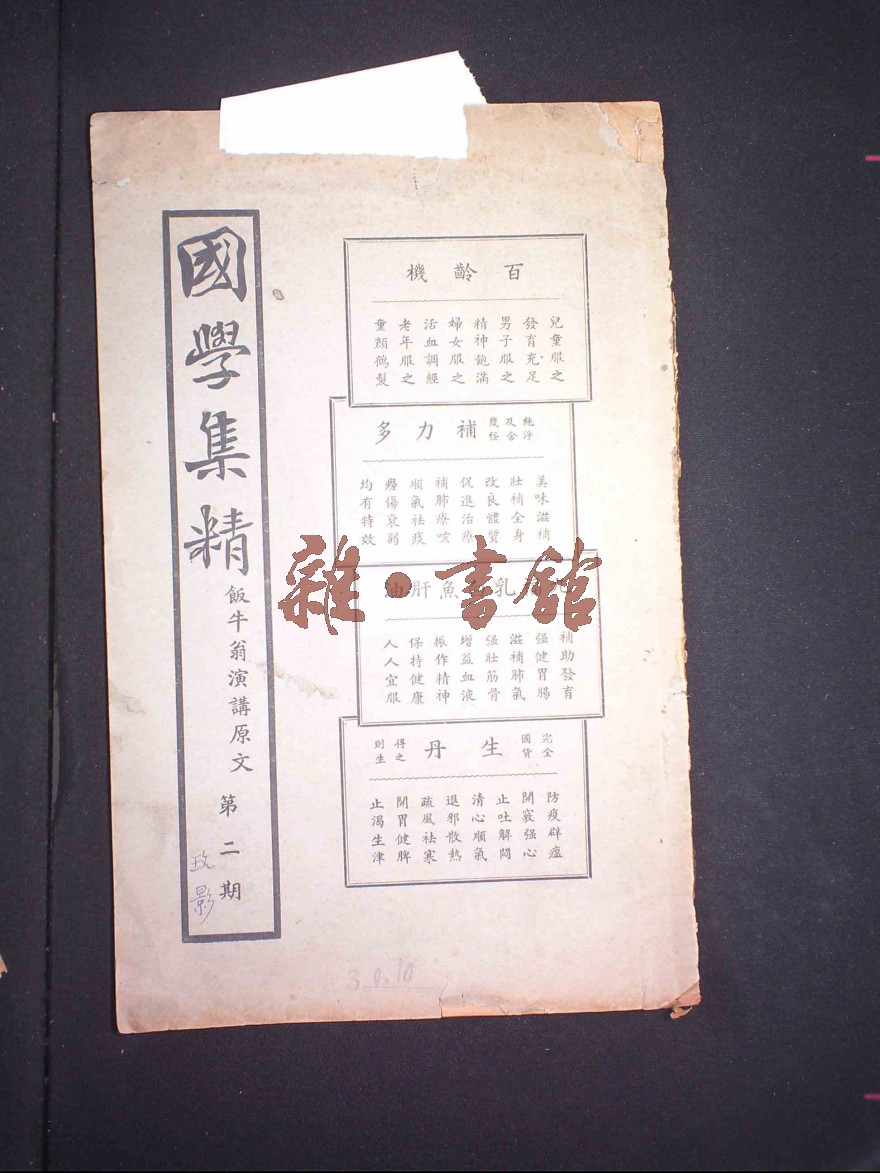 國學集精
飯牛翁演講原文
第二期
玫影
百齡機
兒童服之
發育充足
男子服之
精神飽滿
婦女服之
活血調經
老年服之
童顏鶴髮
純淨
及含
幾怪
補力多
美味滋補
壯補全身
改良體質
促進治療
補肺療咳
順氣祛痰
癆傷衰弱
均有特效
乳 魚肝油
補助發育
强健胃腸
滋補肺氣
强壯筋骨
增益血液
振作精神
保持健康
人人宜服
完全
國貨
生丹
得之
則生
防疫辟瘟
開竅强心
止吐解悶
清心順氣
退邪散熱
疏風祛寒
開胃健脾
止渴生津
雜·書館
3.0.10